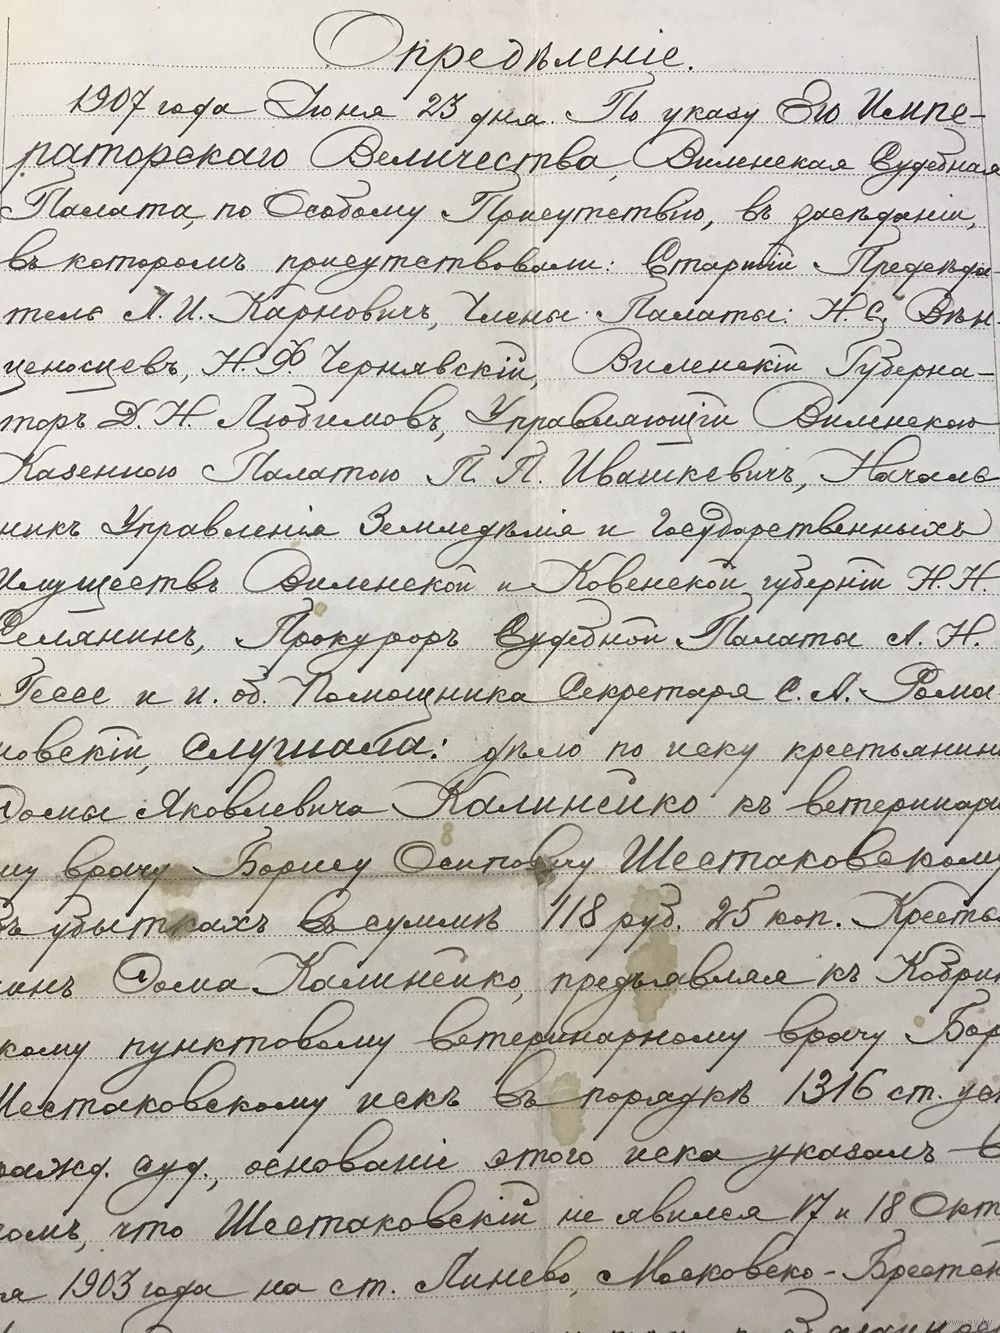 Опредѣленіе.
1907 года Іюня 23 дня. По указу Его Импе-
раторскаго Величества, Виленская Судебная
Палата, по Особому Присутствію, въ засѣданіи,
въ которомъ присутствовали: Старшій Предсѣда-
тель А. И. Карновичъ, Члены Палаты: Н. С. Вѣн
ценосцевъ, Н. Ф. Чернявскій, Виленскій Губерна-
торъ Д. Н. Любимовъ, Управляющій Виленскою
Казенною Палатою П. П. Ивашкевичъ, Началь
никъ Управленія Земледѣлія и Государственныхъ
Имуществъ Виленской и Ковенской губерній Н. Н.
Селянинъ, Прокуроръ Судебной Палаты А. Н.
Гессе и и. об. Помощника Секретаря С. А. Рома
новскій, слушала: дѣло по иску крестьянина
Домы Яковлевича Калинейко къ ветеринарн
му врачу Борису Осиповичу Шестаковскому
въ убыткахъ въ суммѣ 118 руб. 25 коп. Кресть
нинъ Дома Калинейко, предъявляя къ Кобрин
кому пунктовому ветеринарному врачу Бор
Шестаковскому искъ въ порядкѣ 1316 ст. уст
ражд. суд., основаніе этого иска указалъ в
томъ, что Шестаковскій не явился 17 и 18 Окт
я 1903 года на ст. Линево, Московско-Брестск
www.ay.by